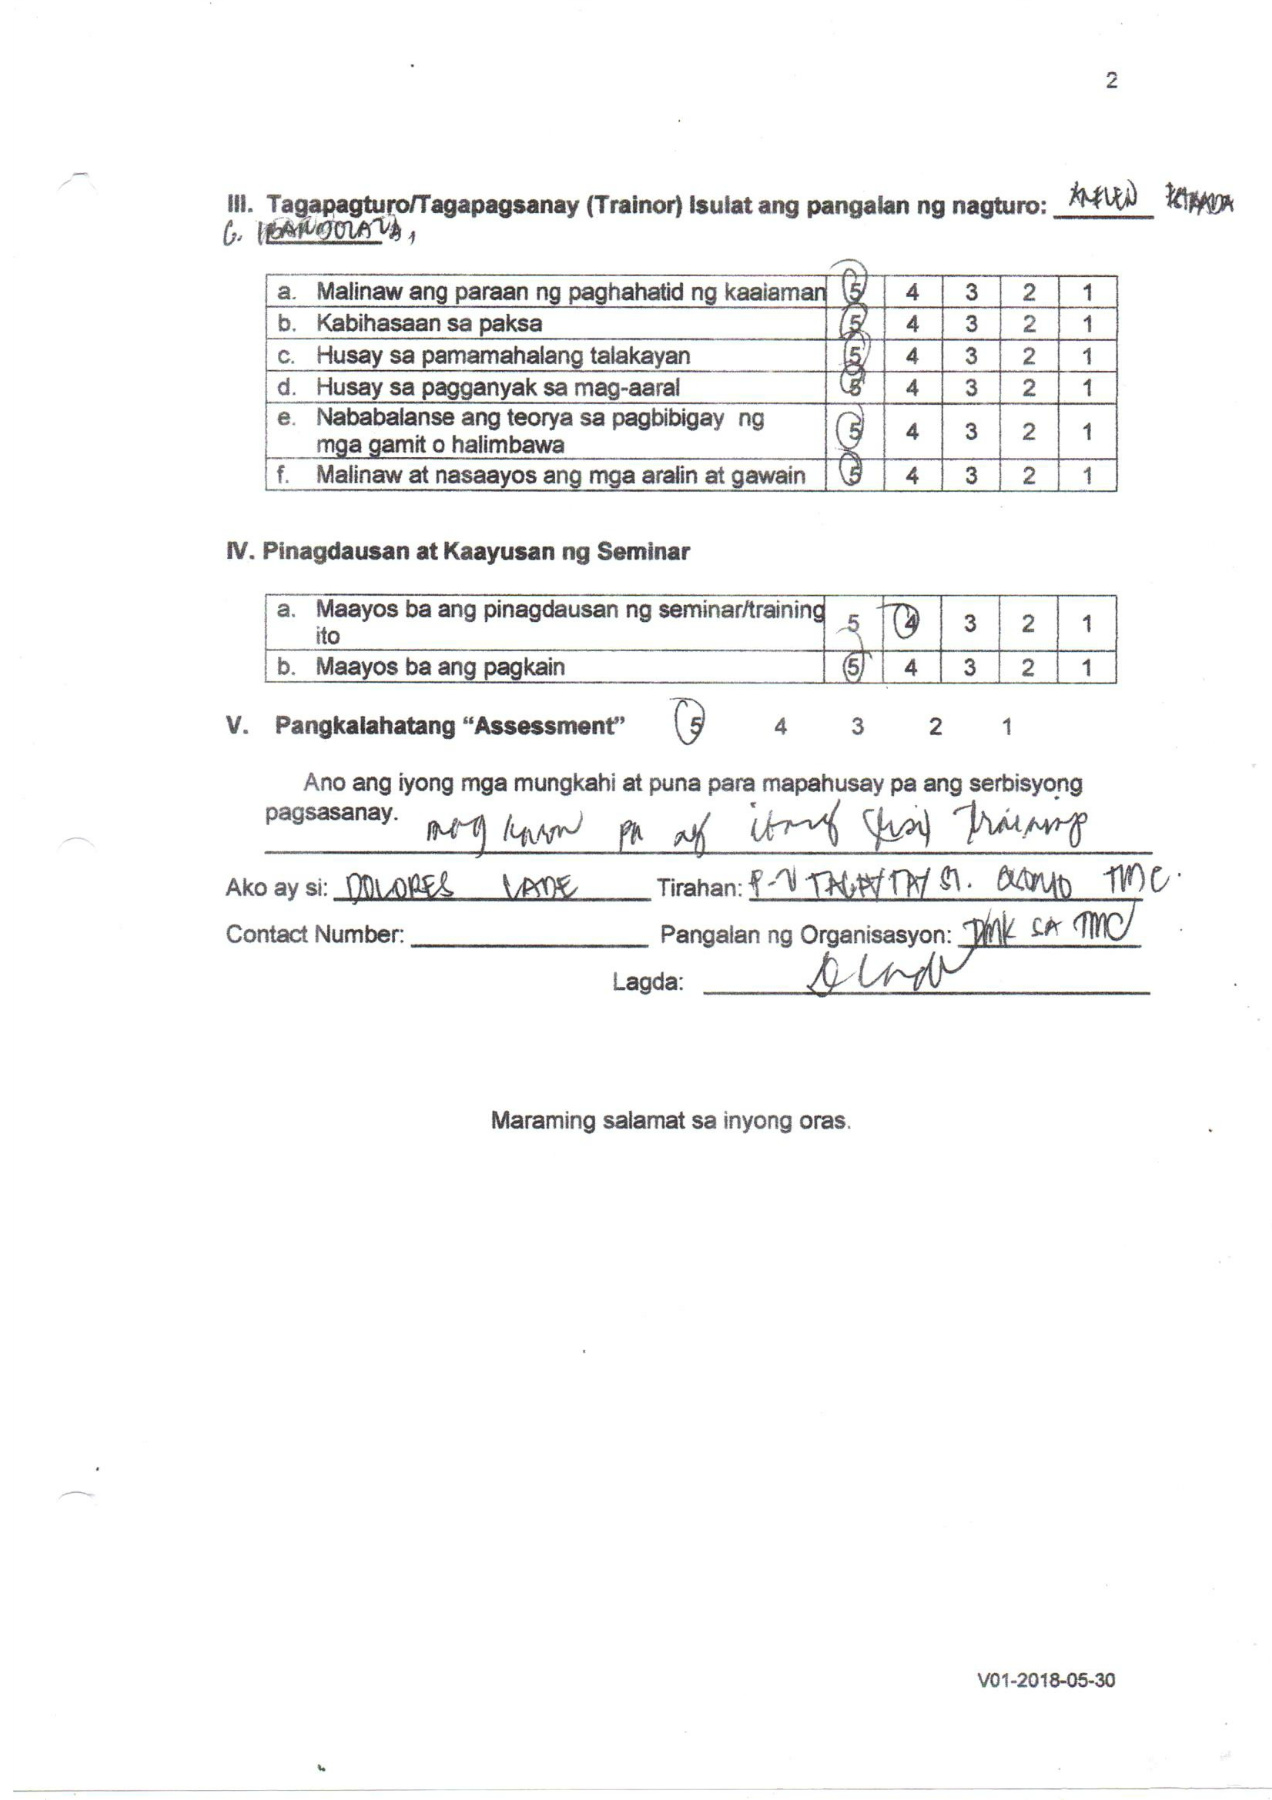 2
III. Tagapagturo/Tagapagsanay (Trainor) Isulat ang pangalan ng nagturo:
G.
a. Malinaw ang paraan ng paghahatid ng kaalaman 5 4 3 2 1
b. Kabihasaan sa paksa 5 4 3 2 1
c. Husay sa pamamahalang talakayan 5 4 3 2 1
d. Husay sa pagganyak sa mag-aaral 5 4 3 2 1
e. Nababalanse ang teorya sa pagbibigay ng
mga gamit o halimbawa 5 4 3 2 1
f. Malinaw at nasaayos ang mga aralin at gawain 5 4 3 2 1
IV. Pinagdausan at Kaayusan ng Seminar
a. Maayos ba ang pinagdausan ng seminar/training
ito 5 4 3 2 1
b. Maayos ba ang pagkain 5 4 3 2 1
V. Pangkalahatang “Assessment” 5 4 3 2 1
Ano ang iyong mga mungkahi at puna para mapahusay pa ang serbisyong
pagsasanay. mag pa training
Ako ay si: DOLORES Tirahan: TAGAYTAY ST. TMC.
Contact Number: Pangalan ng Organisasyon: SA TMC
Lagda:
Maraming salamat sa inyong oras.
V01-2018-05-30